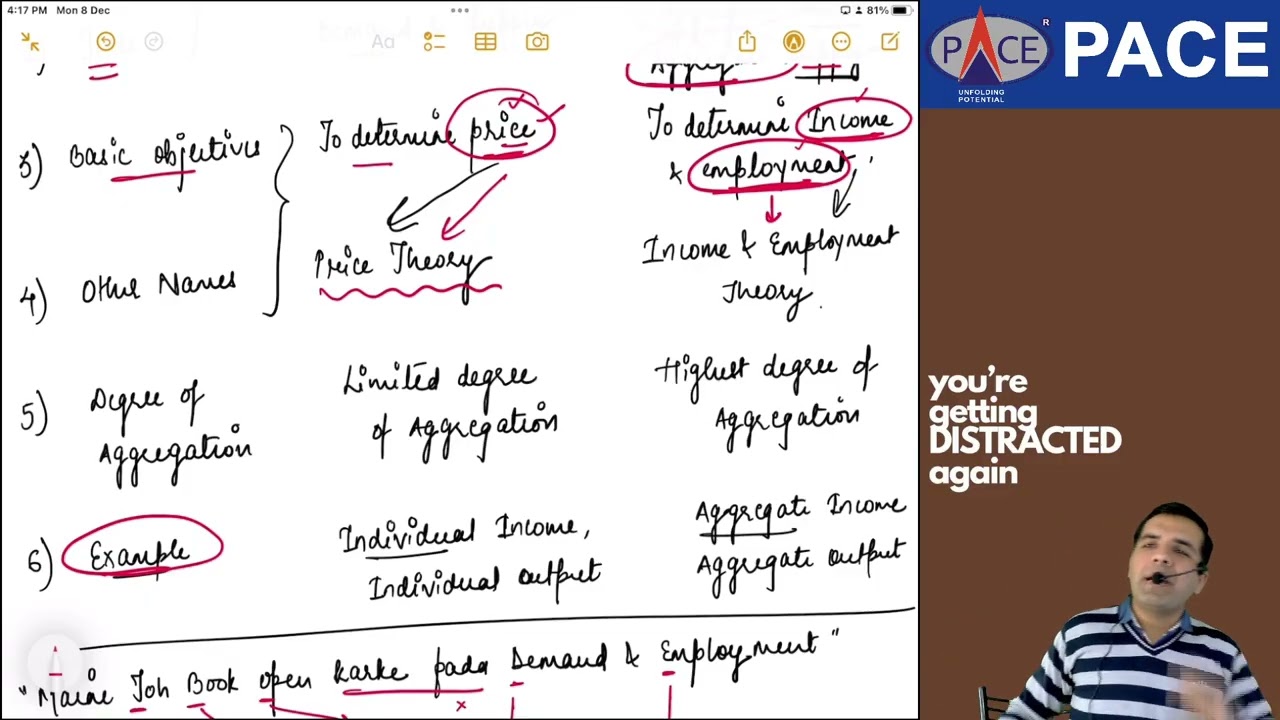 4:17 PM Mon 8 Dec
81%
Aa
PACE
UNFOLDING
POTENTIAL
R
PACE
3) Basic objectives To determine price To determine Income
& employment
4) Other Names Price Theory Income & Employment
Theory.
5) Degree of Limited degree Highest degree of
Aggregation of Aggregation Aggregation
6) Example Individual Income, Aggregate Income
Individual output Aggregate output
"Maine Joh Book open karke pada Demand & Employment"
you're
getting
DISTRACTED
again